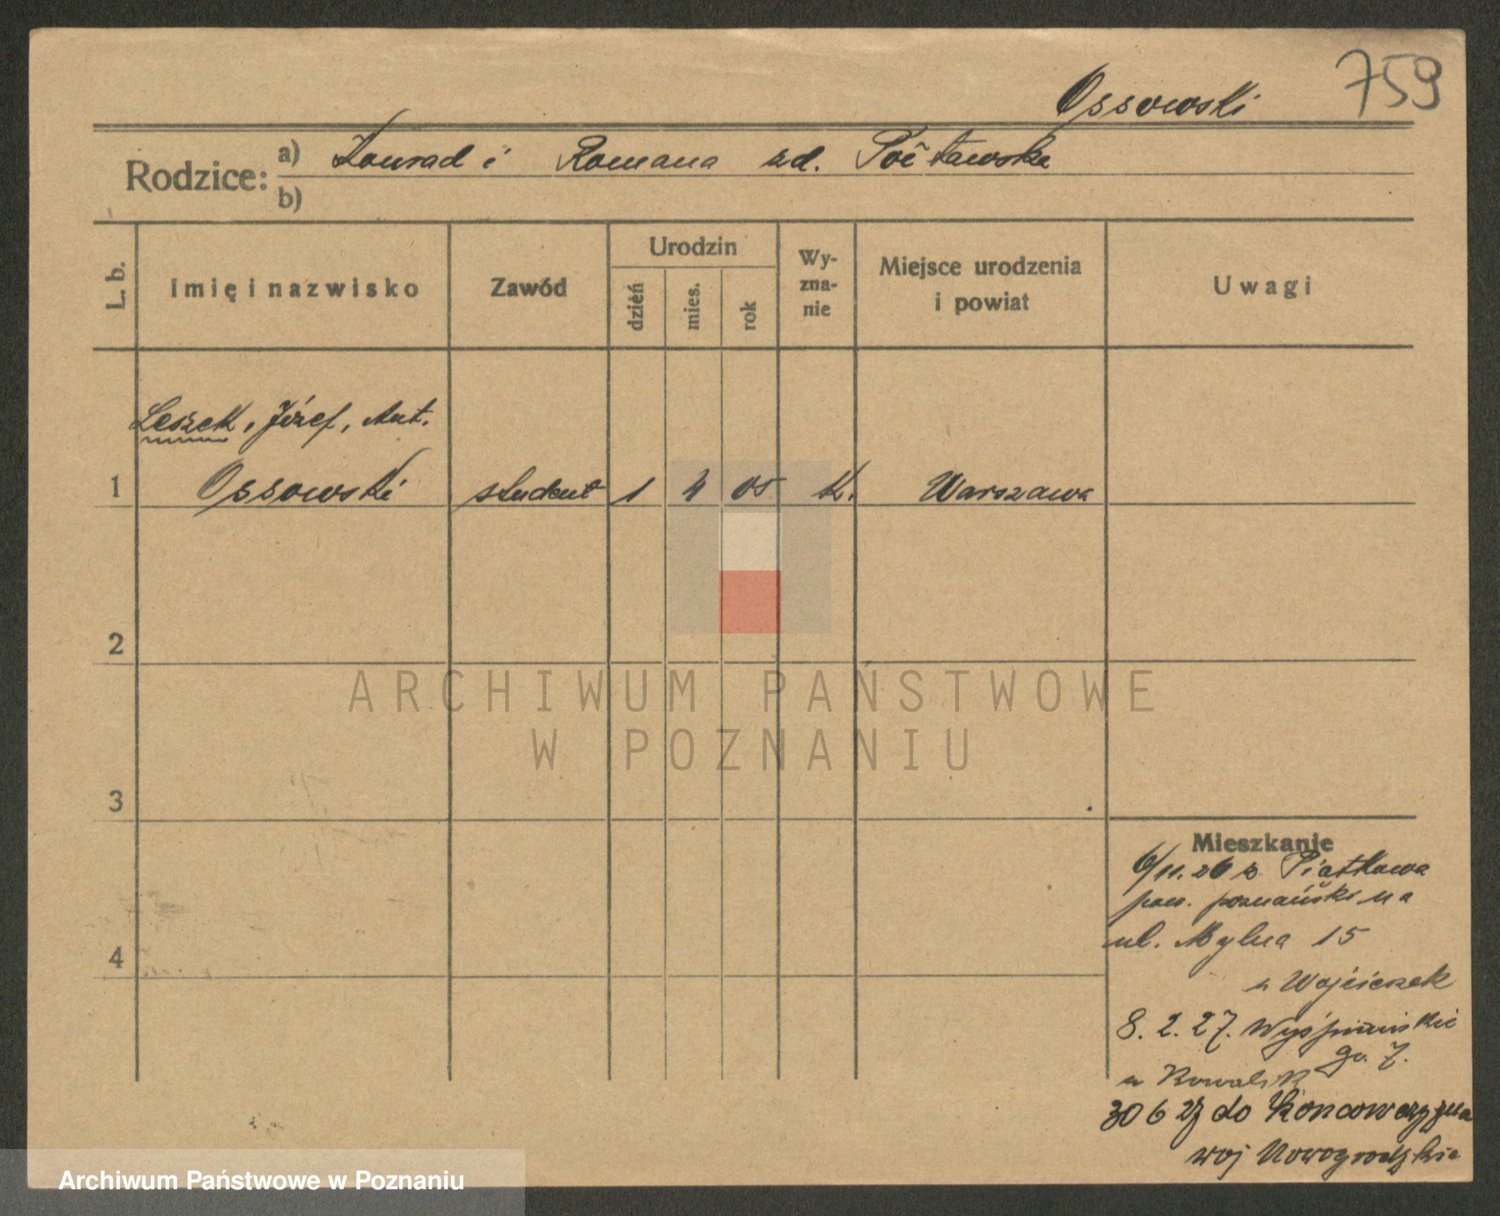 759
Ossowski
Rodzice: a) Konrad i Romana zd.
b)
L. b.
Imię i nazwisko
Zawód
Urodzin
dzień
mies.
rok
Wy-
zna-
nie
Miejsce urodzenia
i powiat
Uwagi
Leszek, Józef, Ant.
1 Ossowski student 1 4 05 K. Warszawa
2
3
4
ARCHIWUM PAŃSTWOWE
W POZNANIU
Mieszkanie
6/11.26 z Piątkowa
pow. poznański na
ul. Mylna 15
u Wojcieszek
8. 2. 27. Wyśpiańskie
go 7.
u Kowalski
30 6 27 do
woj Nowogrodzkie
Archiwum Państwowe w Poznaniu